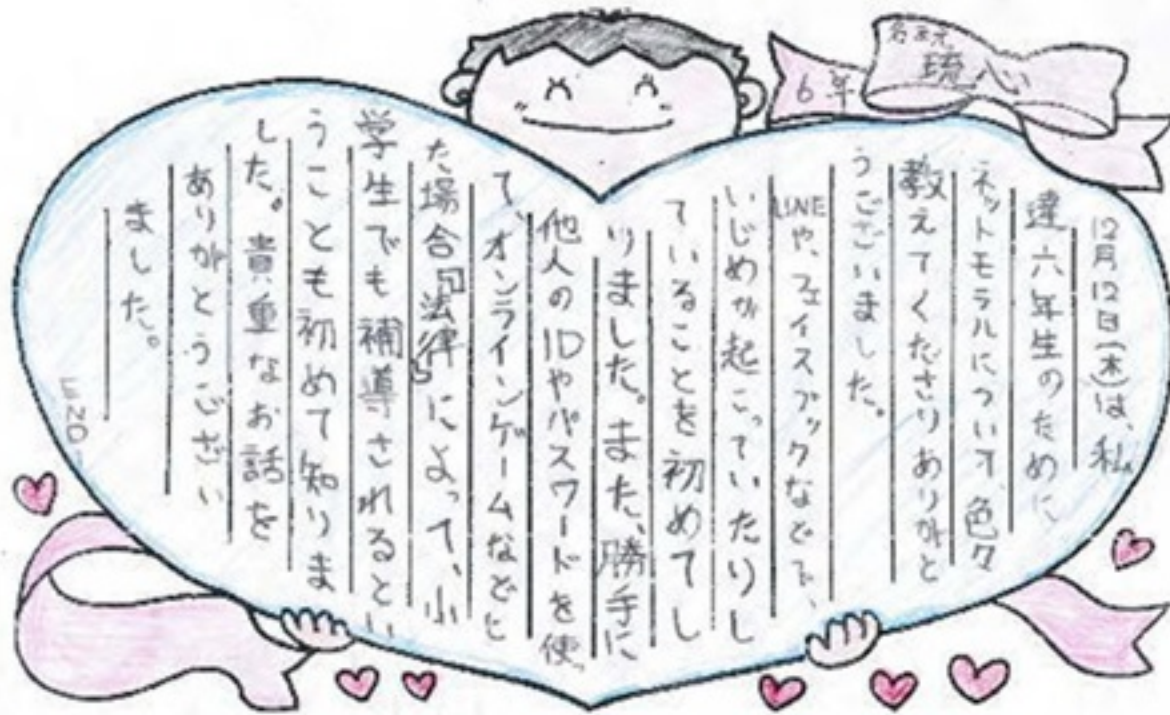 6年
琉心
12月12日(木)は、私
達六年生のために
ネットモラルについて、色々
教えてくださりありがと
うございました。
LINEや、フェイスブックなどで、
いじめが起こっていたりし
ていることを初めてし
りました。また、勝手に
他人のIDやパスワードを使っ
て、オンラインゲームなどを
た場合『法律』によって、小
学生でも補導されるとい
うことも初めて知りま
した。貴重なお話を
ありがとうござい
ました。
END